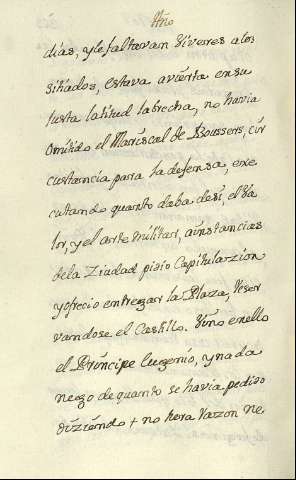 Año
dias, yle faltavan viveres a los
sitiados, estava avierta en su
justa latitud la brecha, no havia
Omitido el Mariscal de Boussers, cir
custancia para la defensa, exe
cutando quanto daba de si, el Va
lor, y el arte militar, a instancias
de la Ziudad pidio Capitulazion
y ofrecio entregar la Plaza, Reser
vandose el Castillo. Vino en ello
el Principe Eugenio, y nada
nego de quanto se havia pedido
diziendo + no hera Razon ne